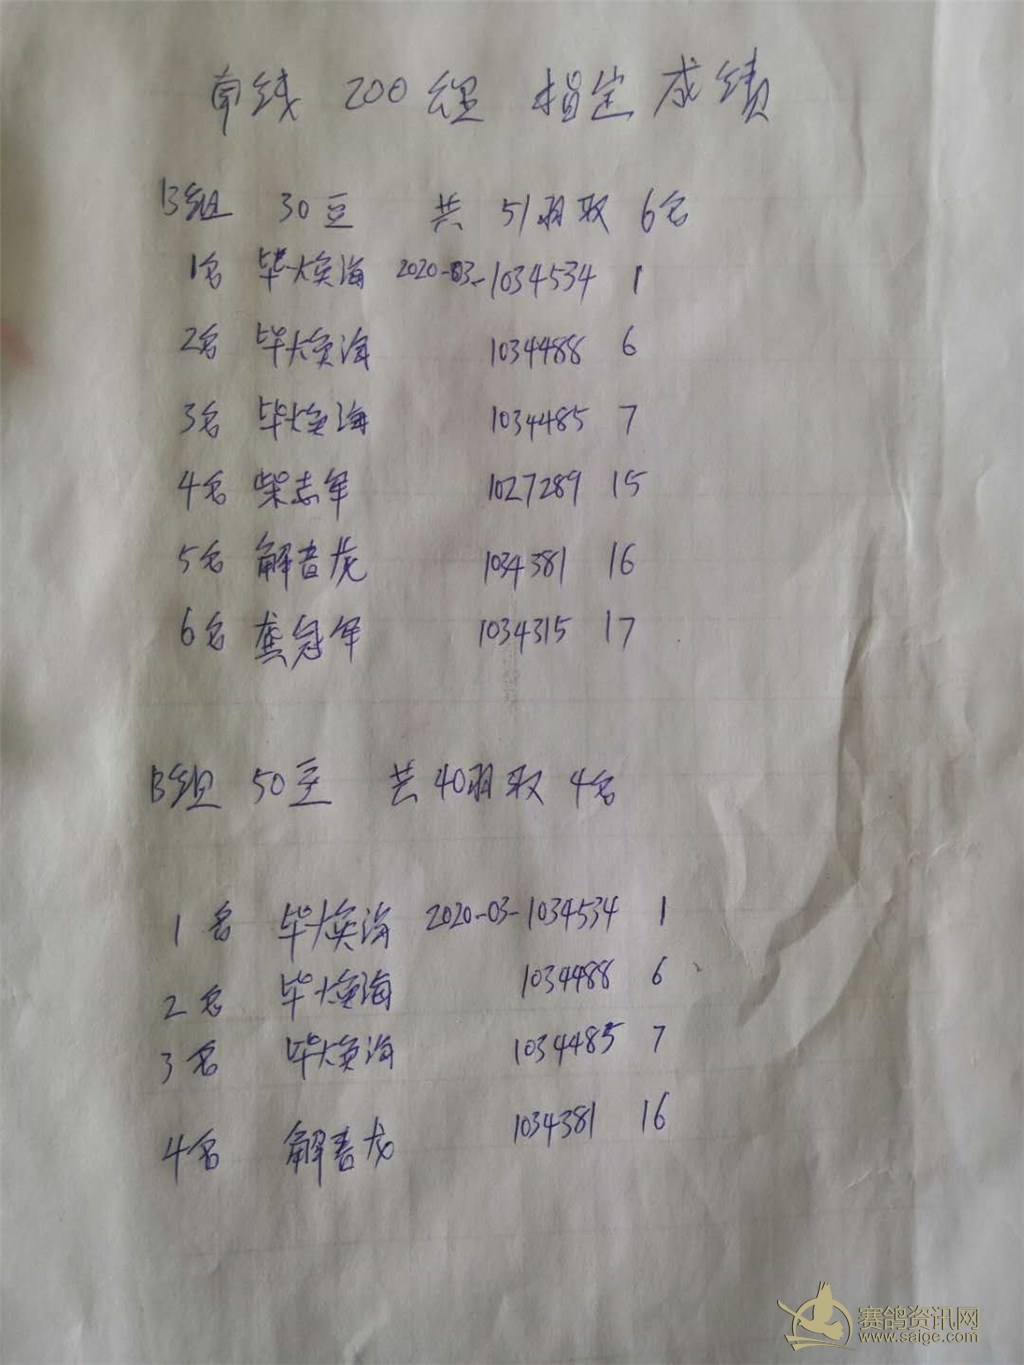 南线 200 组 指定成绩
B组 30豆 共 51羽取 6名
1名 毕焕海 2020-03-1034534 1
2名 毕焕海 1034488 6
3名 毕焕海 1034485 7
4名 柴志军 1027289 15
5名 解春龙 1034381 16
6名 龚冠军 1034315 17
B组 50豆 共40羽取 4名
1名 毕焕海 2020-03-1034534 1
2名 毕焕海 1034488 6
3名 毕焕海 1034485 7
4名 解春龙 1034381 16
赛鸽资讯网
www.saige.com